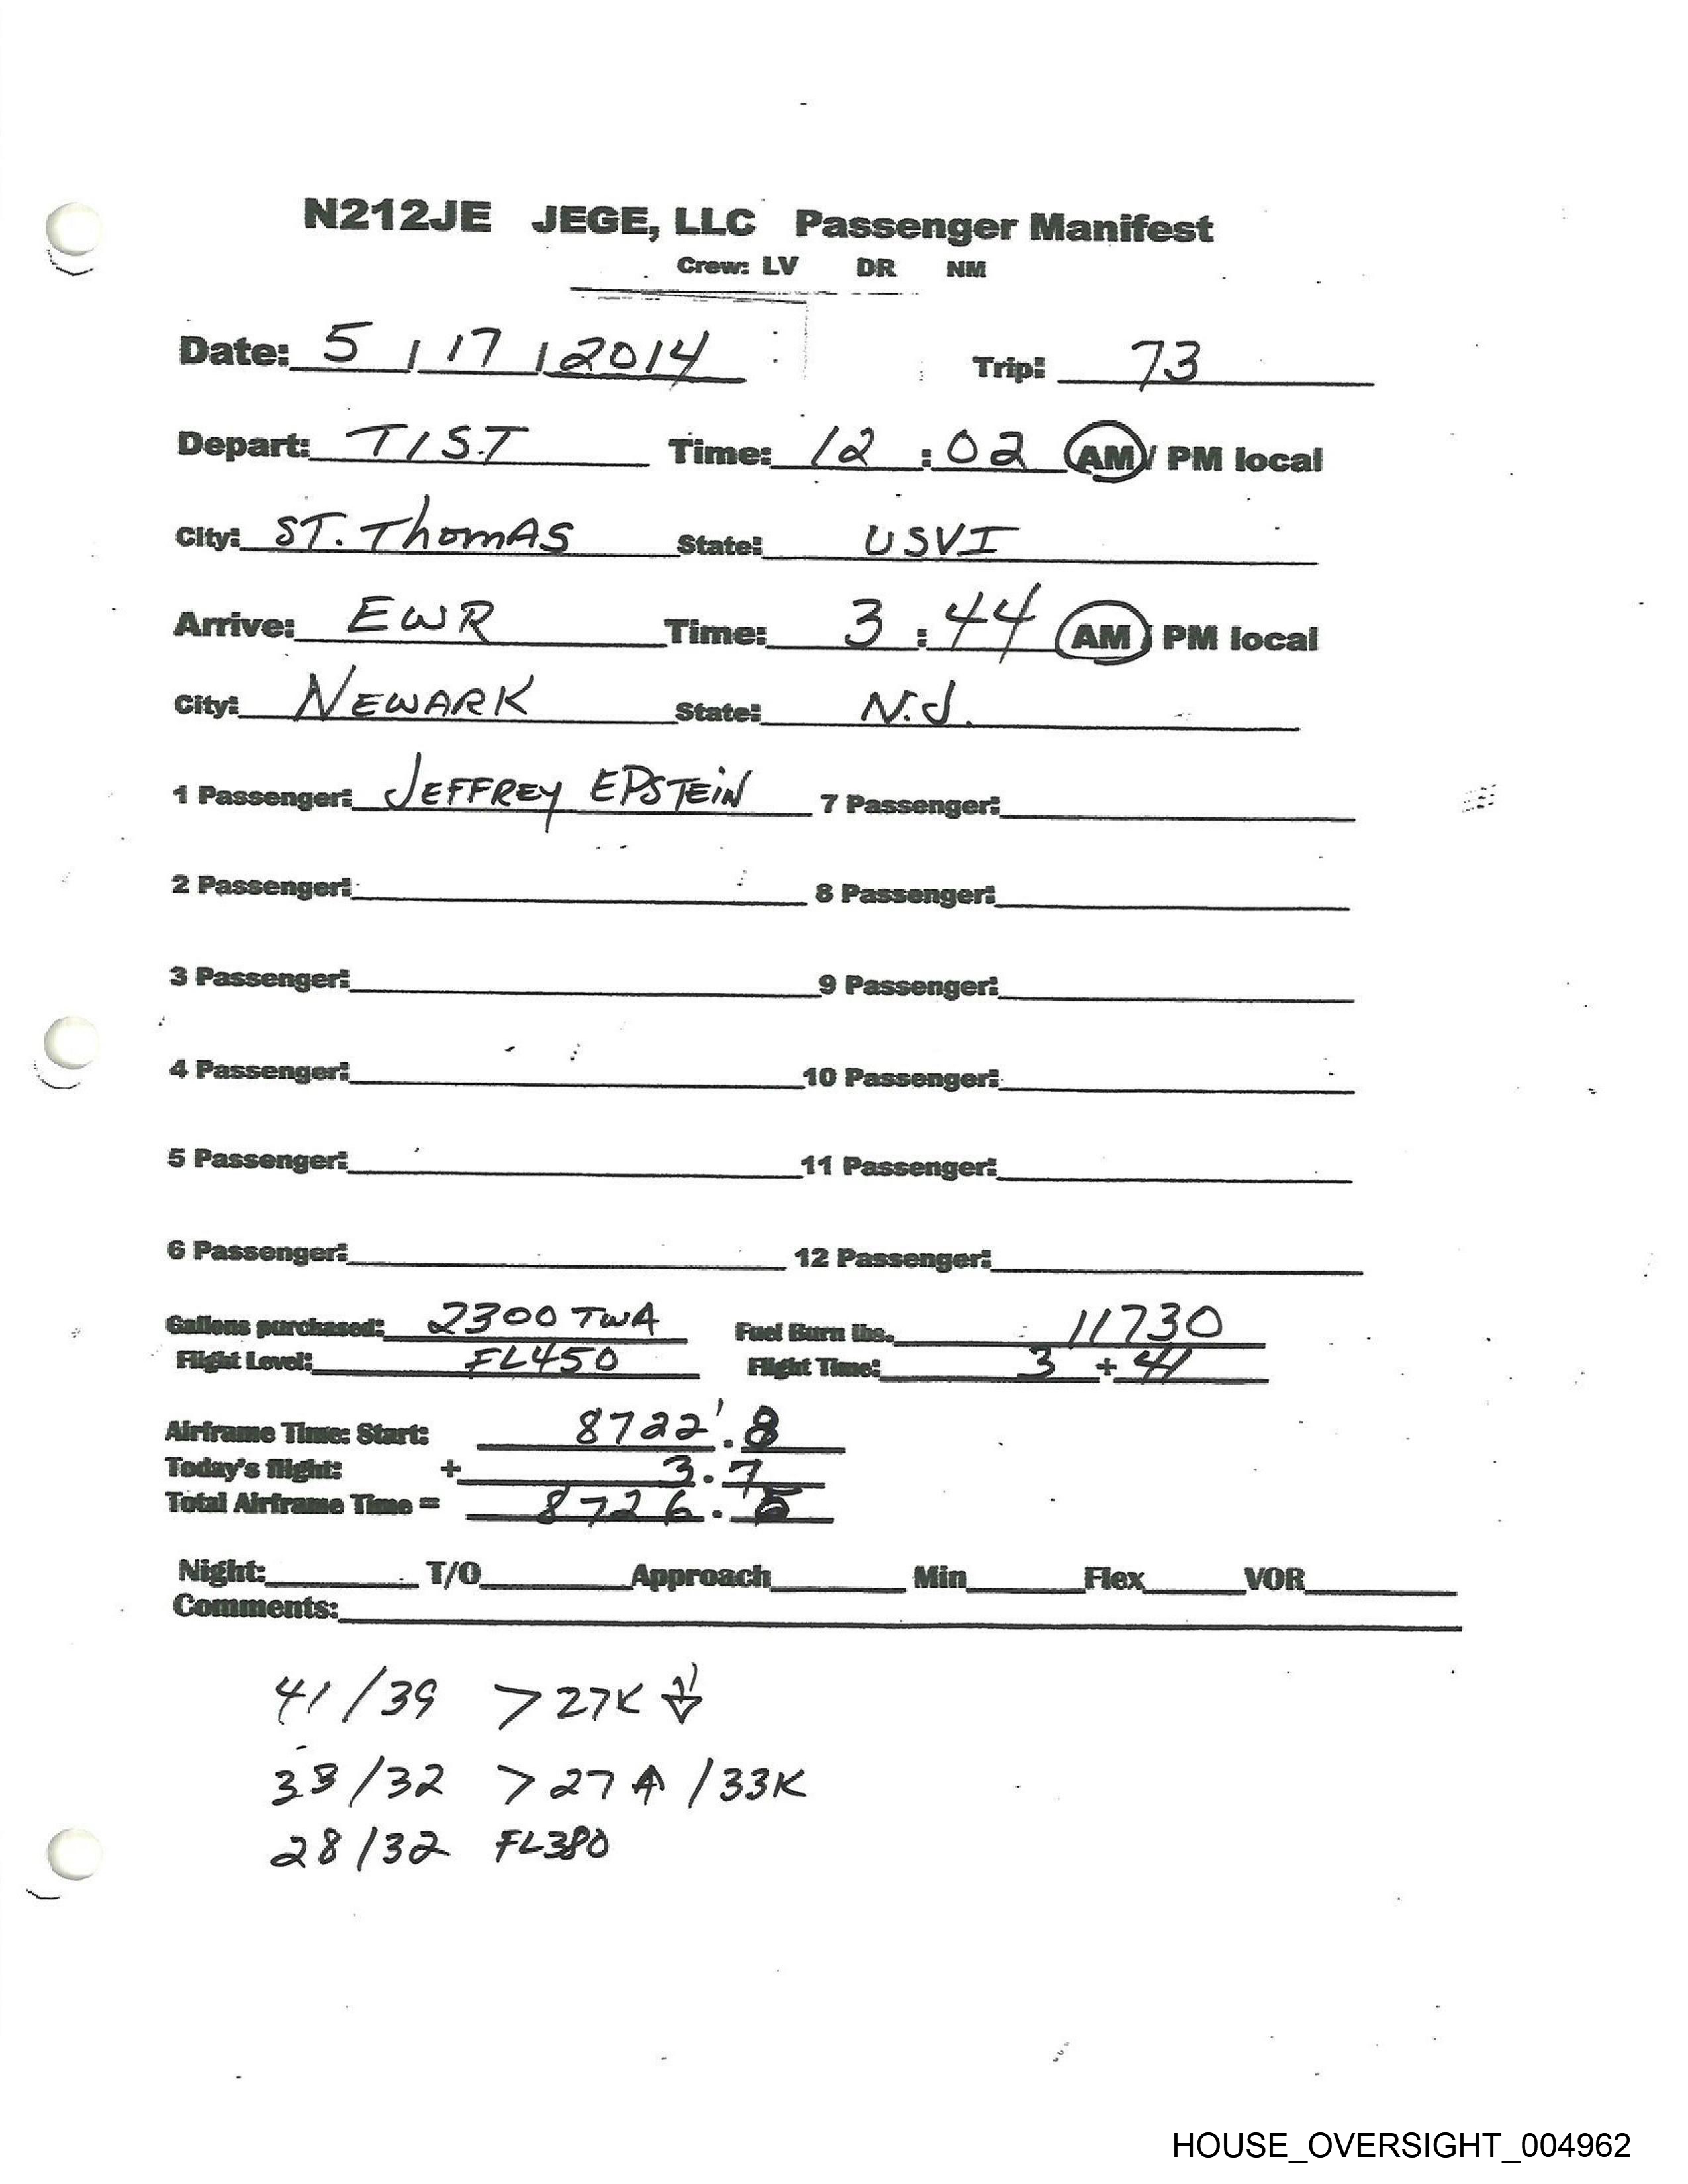 N212JE JEGE, LLC Passenger Manifest
Crew: LV DR NM
Date: 5 / 17 / 2014 Trip: 73
Depart: TIST Time: 12 : 02 AM / PM local
City: ST. ThomAS State: USVI
Arrive: EWR Time: 3 : 44 AM / PM local
City: NEWARK State: N.J.
1 Passenger: JEFFREY EPSTEiN 7 Passenger:
2 Passenger: 8 Passenger:
3 Passenger: 9 Passenger:
4 Passenger: 10 Passenger:
5 Passenger: 11 Passenger:
6 Passenger: 12 Passenger:
Gallons purchased: 2300 TWA Fuel Burn lbs. 11730
Flight Level: FL450 Flight Time: 3 + 41
Airframe Time: Start: 8722.8
Today's flight: + 3.7
Total Airframe Time = 8726.5
Night: T/O Approach Min Flex VOR
Comments:
41/39 >27K ↓
33/32 >27 ↑ /33K
28/32 FL380
HOUSE_OVERSIGHT_004962